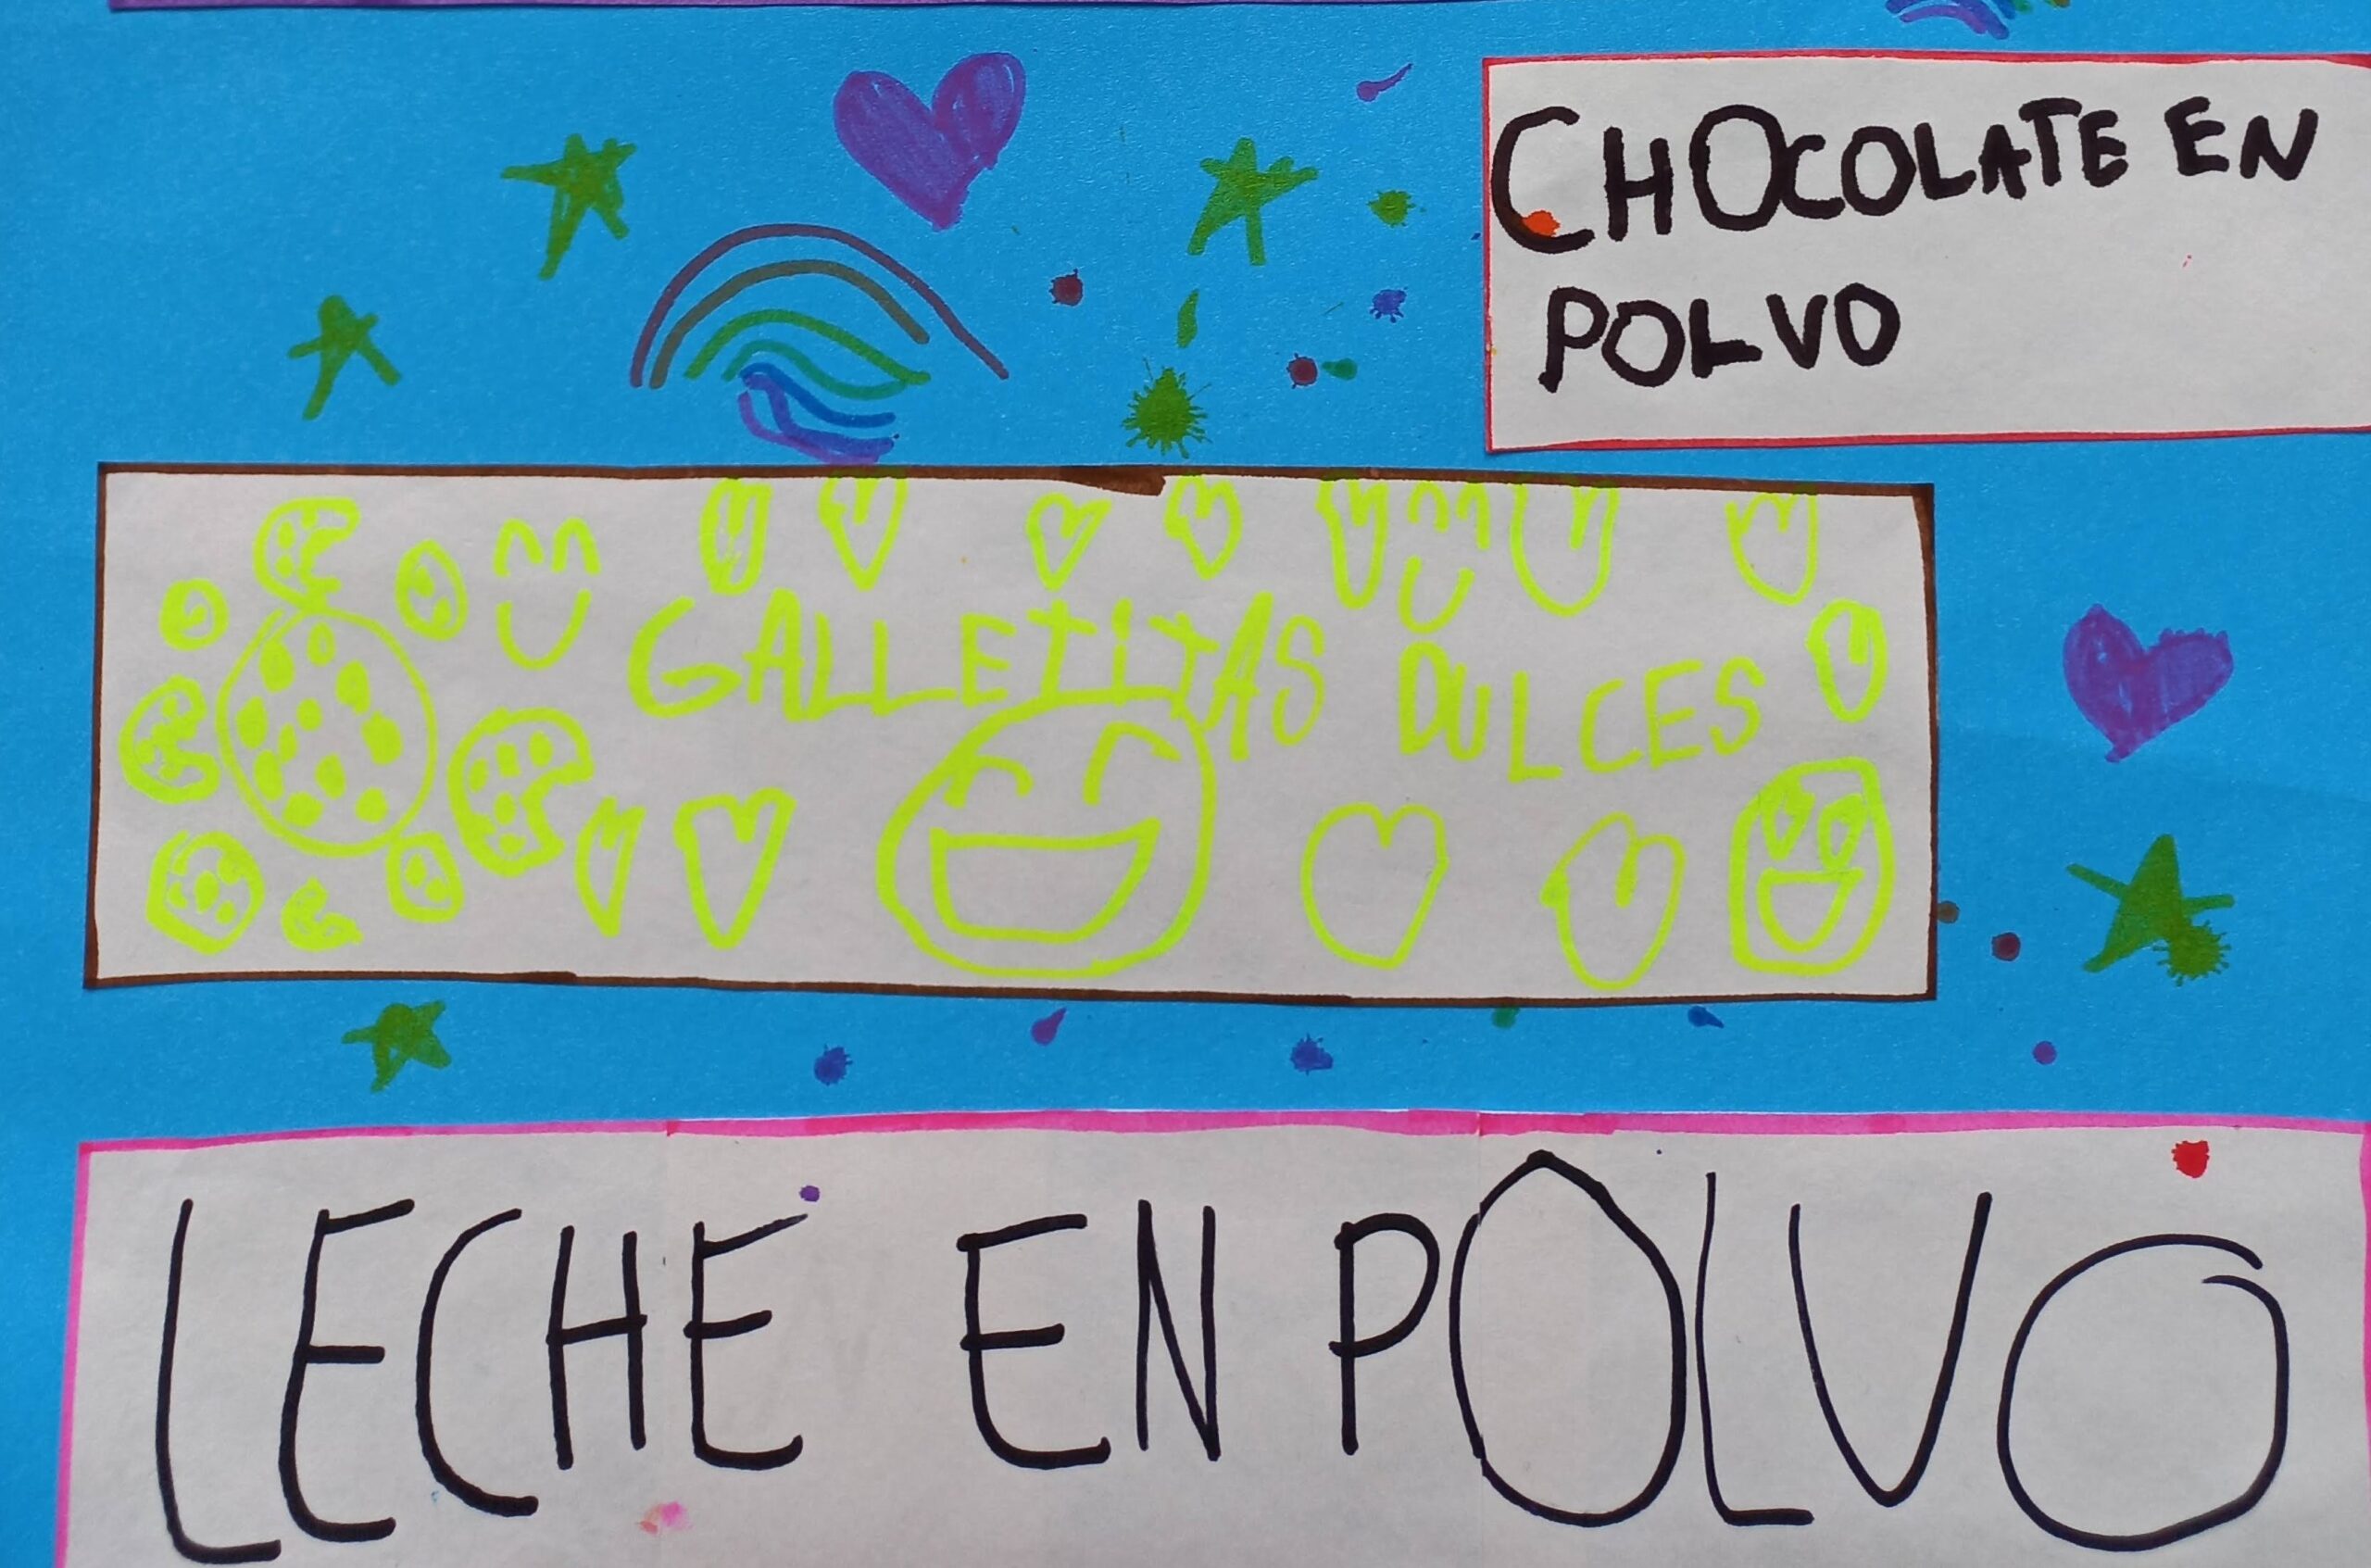 CHOCOLATE EN
POLVO
GALLETITAS DULCES
LECHE EN POLVO